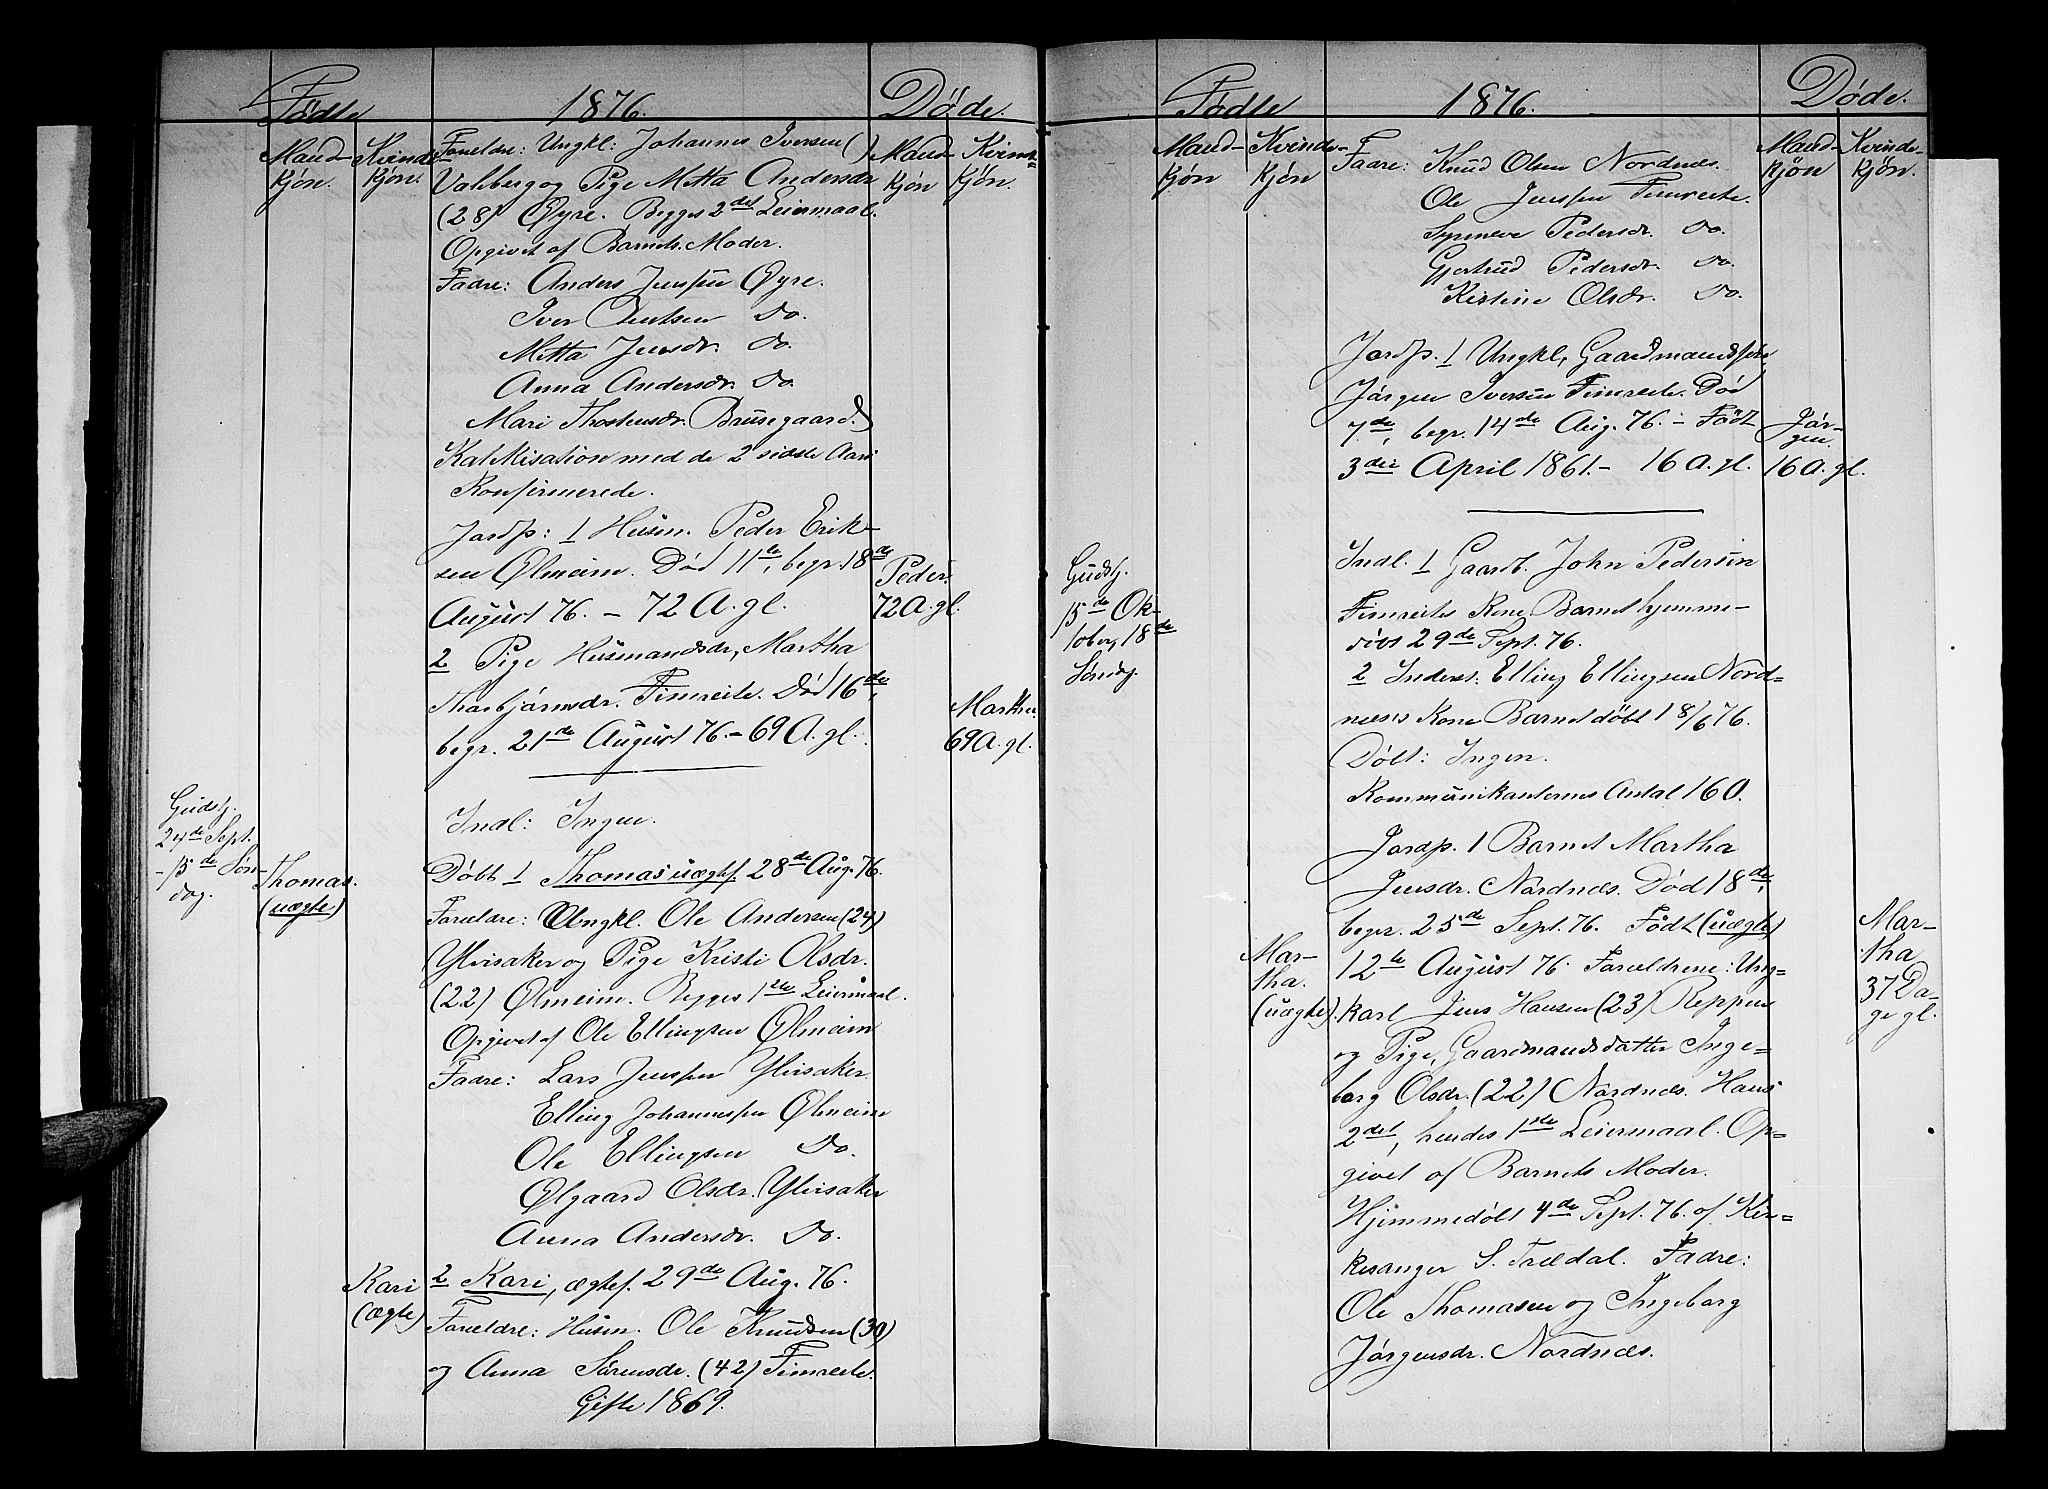 Födte
1876.
Døde.
Mand-
kjön.
Kvinde-
kjøn.
Mand-
kjøn
Kvinde-
kjøn.
Foreldre: Ungkl: Johannes Iversen ( )
Valberg og Pige Mitta Andersdr
(28) Øyre. Begges 2det Leiermaal.
Opgivet af Barnets Moder.
Fadre: Anders Jensen Øyre.
Iver Do.
Mitta Jensdr. Do.
Anna Andersdr. Do.
Mari Thostensdr. Brusegaard.
Katekisation med de 2 sidste Aars
Konfirmerede.
Jordp: 1 Husm. Peder Erik-
sen Ølmeim. Død 11te, begr. 18de
August 76. – 72 A. gl.
Peder.
72 A. gl.
2 Pige Husmandsdr, Martha
Thorbjörnsdr. Fimreite. Død 16de,
begr. 21de August 76. – 69 A. gl.
Martha.
69 A. gl.
Gudstj.
24de Sept.
- 15de Søn-
dag.
Indl: Ingen.
Thomas.
(uægte)
Døbt 1 Thomas uægtef. 28de Aug. 76.
Forældre: Ungkl. Ole Andersen (24)
Ylvisaker og Pige Kristi Olsdr.
(22) Ølmeim. Begges 1ste Leiermaal.
Opgivet af Ole Ellingsen Ølmeim
Fadre: Lars Jensen Ylvisaker
Elling Johannesen Ølmeim
Ole Ellingsen Do.
Ølgaard Olsdr. Ylvisaker
Anna Andersdr. Do.
Kari
(ægte)
2 Kari, ægtef. 29de Aug. 76.
Forældre: Husm. Ole Knudsen (30)
og Anna Sörensdr. (42) Fimreite.
Gifte 1869.
Födte
1876.
Døde.
Mand-
kjön
Kvinde-
kjön
Mand-
kjön
Kvinde-
kjön.
Fadre: Knud Olsen Nordnæs.
Ole Jensen Fimreite.
Synneve Pedersdr. Do.
Gjertrud Pedersdr. Do.
Kistine Olsdr. Do.
Jordp. 1 Ungkl, Gaardmandssøn
Jörgen Iversen Fimreite. Död
7de, begr. 14de Aug. 76. – Födt
3die April 1861. – 16 A. gl.
Jör-
gen.
16 A. gl.
Gudstj.
15de Ok-
tober, 18de
Söndag.
Indl. 1 Gaardb. John Pedersen
Fimreites Kone Barnet hjemme-
døbt 29de Sept. 76.
2 Inderst: Elling Ellingsen Nord-
næsis Kone Barnet döbt 18/6 76.
Døbt: Ingen.
Kommunikanternes Antal 160.
Jordp. 1 Barnet Martha
Jensdr. Nordnæs. Död 18de,
begr. 25de Sept. 76. Födt (uægte)
12te August 76. Forældrene: Ung-
karl Jens Hansen (23) Reppen
og Pige, Gaardmandsdatter Inge-
borg Olsdr. (22) Nordnæs. Hans
2det, hendes 1ste Leiermaal. Op-
givet af Barnets Moder.
Mar-
tha.
(uægte).
Mar-
tha
37 Da-
ge gl.
Hjemmedöbt 4de Sept. 76. af Kir-
kesanger S. Trædal. Fadre:
Ole Thomasen og Ingeborg
Jörgensdr. Nordnæs.